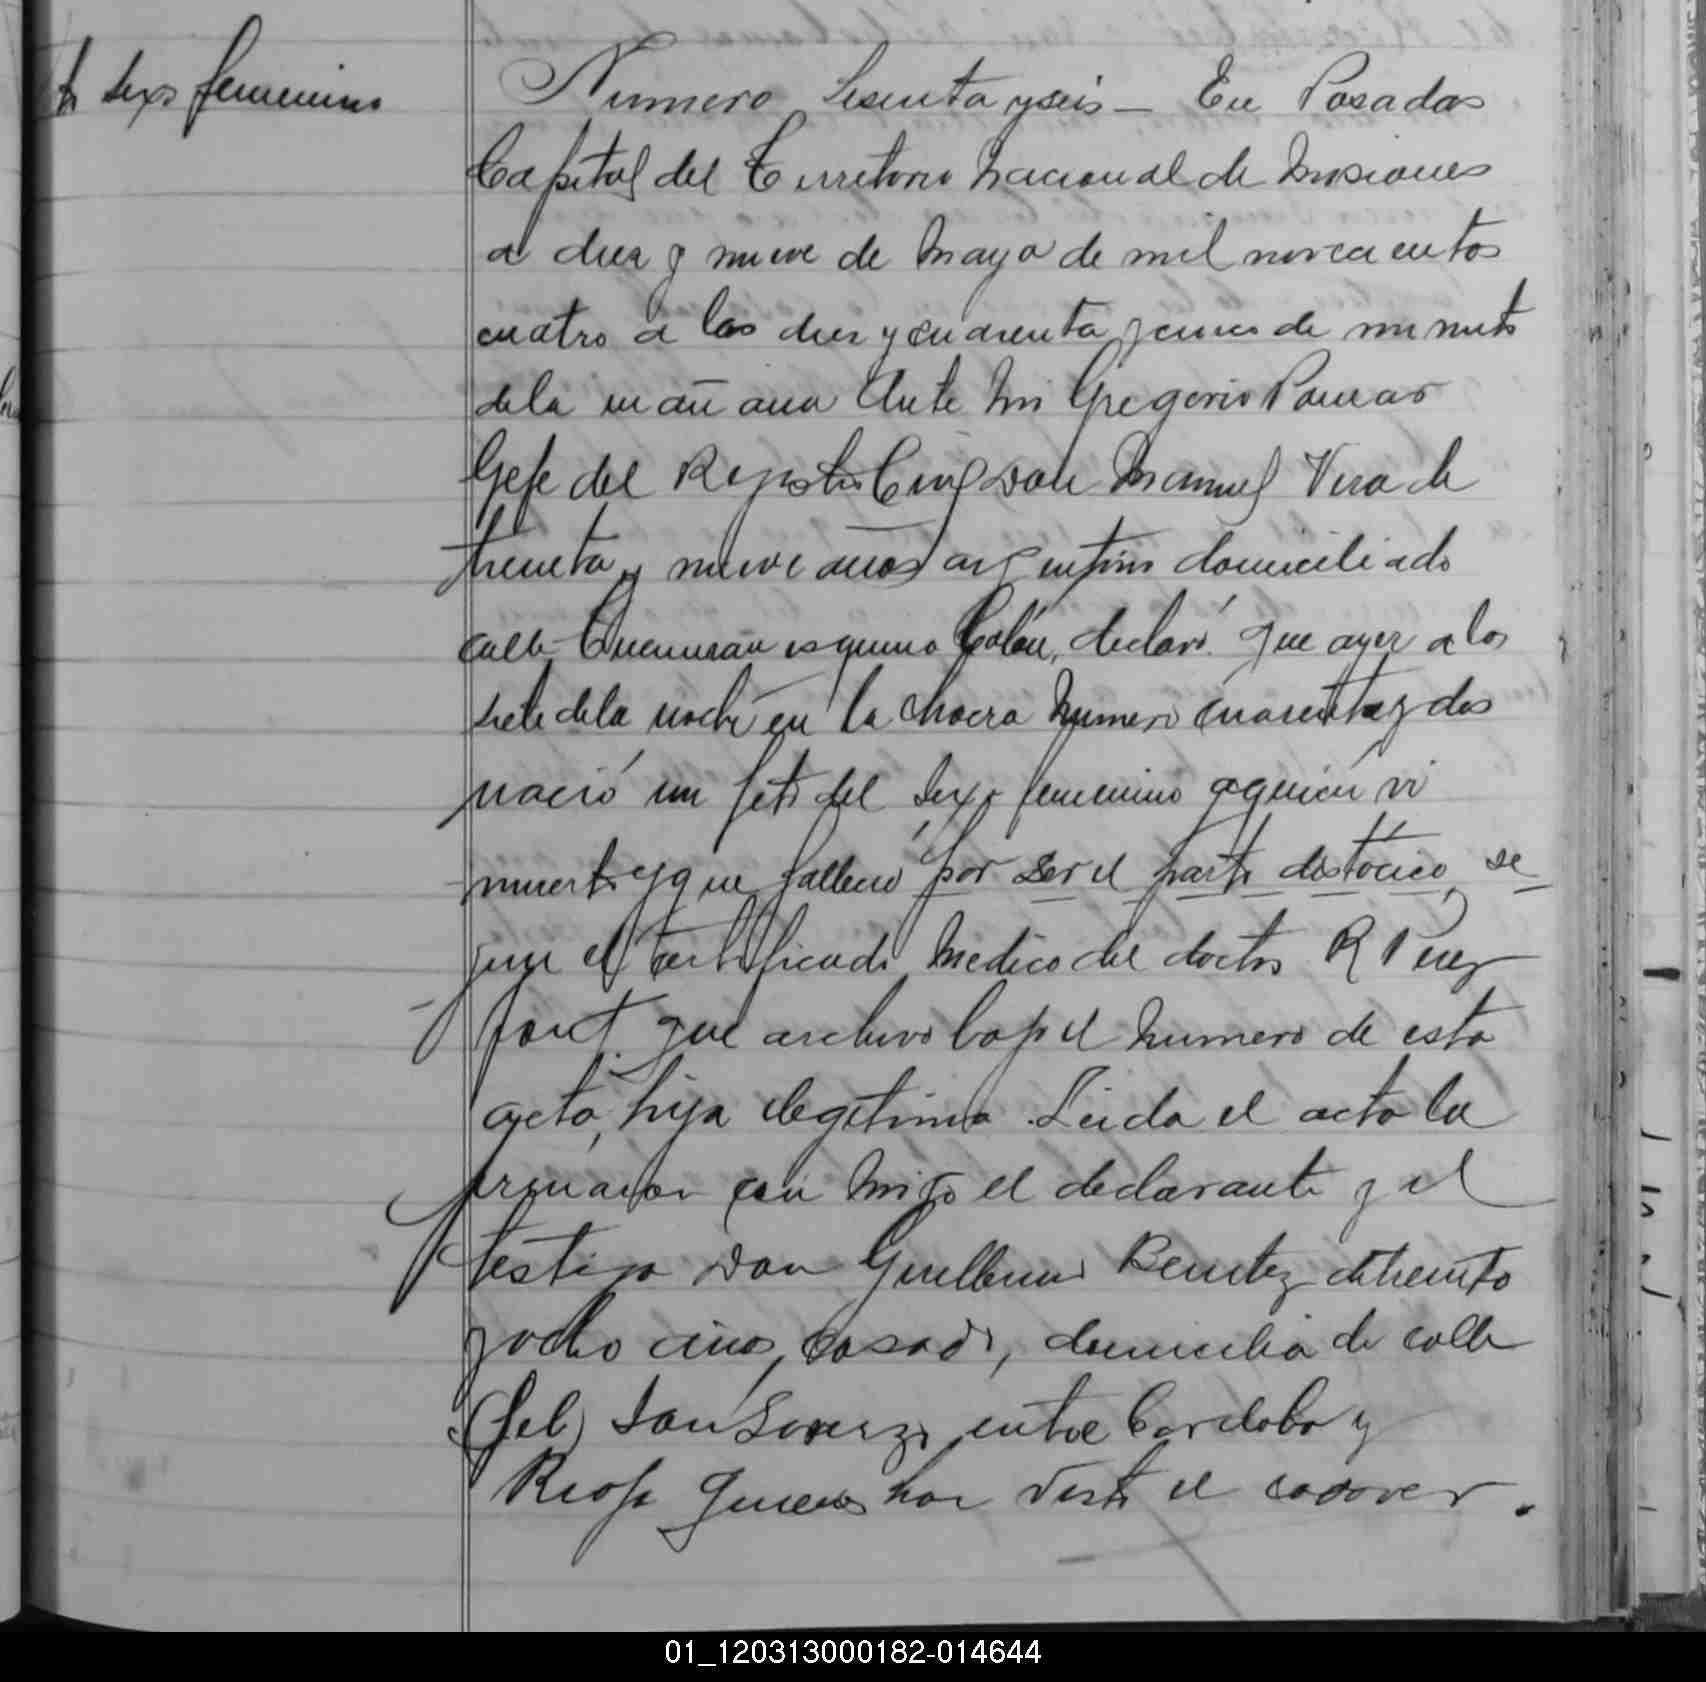 sexo femenino
Numero sesenta y seis — En Posadas
Capital del Territorio Nacional de Misiones
a diez y nueve de Mayo de mil novecientos
cuatro a las diez y cuarenta y cinco de minuto
de la mañana Ante Mi Gregorio
Gefe del Registro Civil Don Manuel Vera de
treinta y nueve años argentino domiciliado
calle Tucuman esquina Colón, declaró que ayer a las
siete de la noche en la chacra Numero cuarenta y dos
nació un feto del sexo femenino a quien vi
muerto y que falleció por ser el parto distócico, se
gun el certificado Medico del doctor R Perez
font que archivo bajo el Numero de esta
acta, hija ilegitima. Leida el acta la
firmaron con migo el declarante y el
testigo Don Guillermo Benitez de treinta
y ocho años, casado, domiciliado calle
(fel) San Lorenzo entre Cordoba y
Rioja quienes han visto el cadaver.
01_120313000182-014644